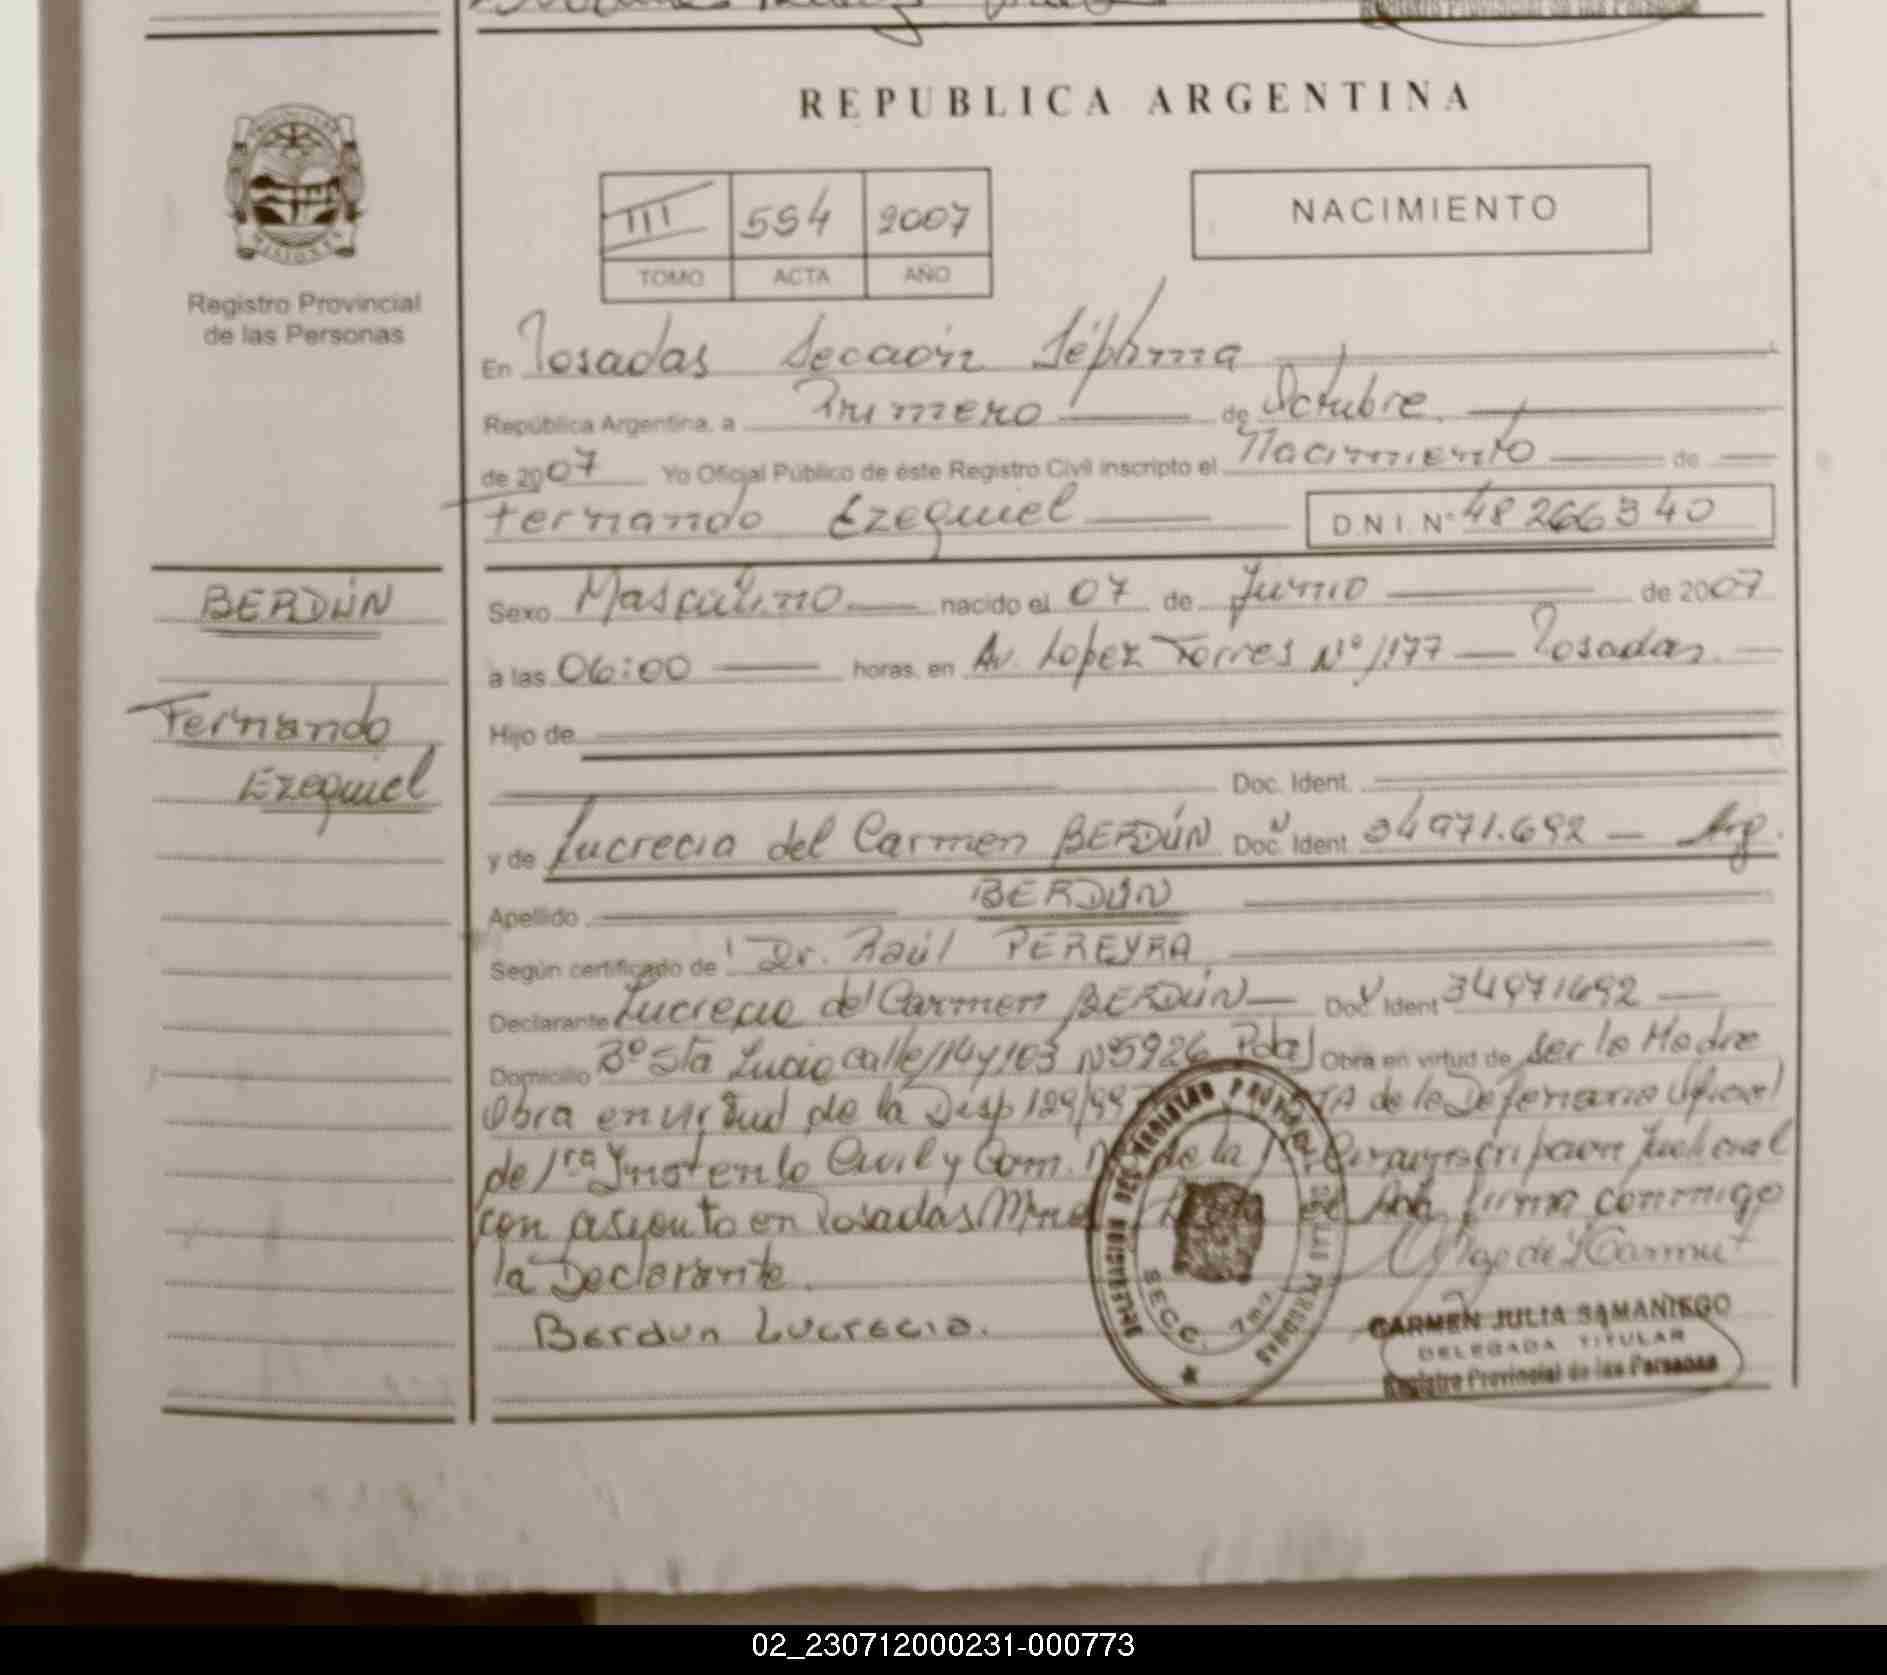 REPUBLICA ARGENTINA
III 554 2007
TOMO ACTA AÑO
NACIMIENTO
MISIONES
Registro Provincial
de las Personas
En Posadas Sección Séptima
República Argentina, a Primero de Octubre
de 2007 Yo Oficial Público de éste Registro Civil inscripto el Nacimiento de
Fernando Ezequiel D.N.I. Nº 48266340
BERDÚN
Fernando
Ezequiel
Sexo Masculino nacido el 07 de Junio de 2007
a las 06:00 horas, en Av. Lopez Torres Nº 1177 Posadas
Hijo de
Doc. Ident.
y de Lucrecia del Carmen BERDÚN Doc. Ident 34971.692 Arg.
Apellido BERDÚN
Según certificado de Dr. Raúl PEREYRA
Declarante Lucrecia del Carmen BERDÚN Doc. Ident 34971692
Domicilio Bº Sta Lucia calle 114 y 103 Nº 5926 Pdas Obra en virtud de ser la Madre
Obra en virtud de la Disp 129/99 de la Defensoria Oficial
de 1ra Inst en lo Civil y Com. de la Circunscripcion Judicial
con asiento en Posadas Mnes firma conmigo
la Declarante.
Berdun Lucrecia.
SECC. 7ma
CARMEN JULIA SAMANIEGO
DELEGADA TITULAR
Registro Provincial de las Personas
02_230712000231-000773